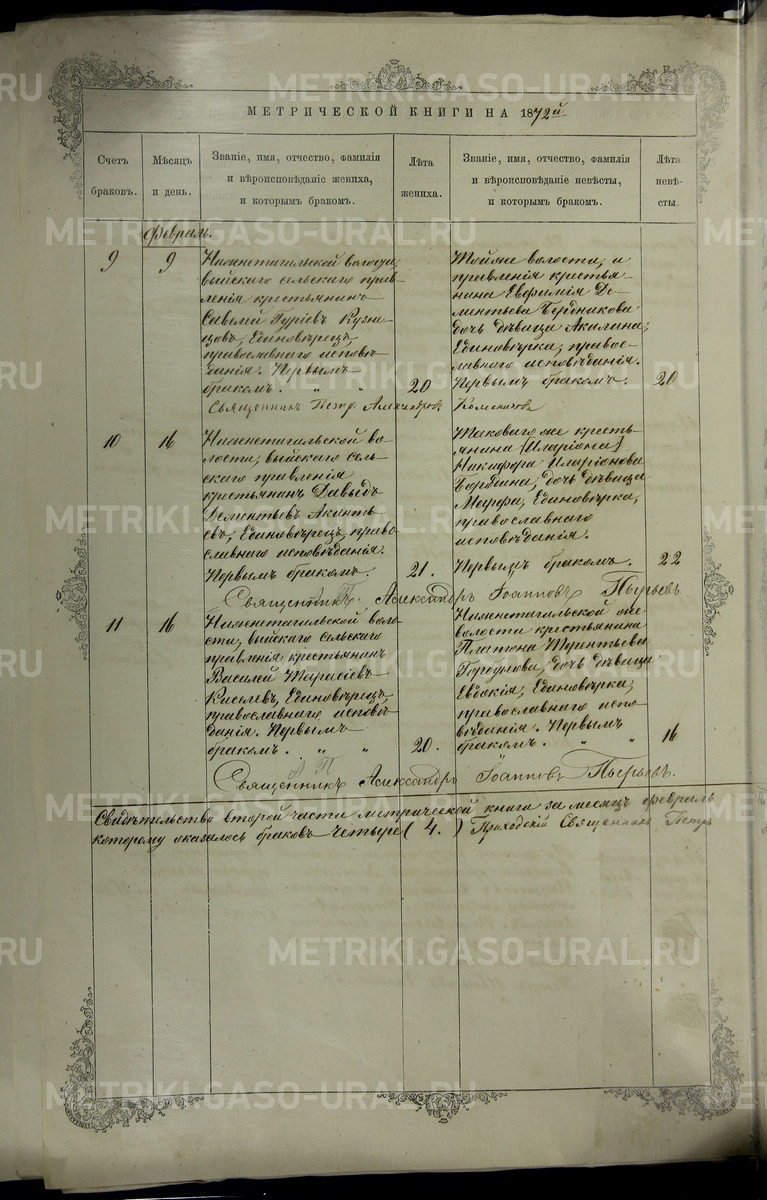 МЕТРИЧЕСКОЙ КНИГИ НА 1872й
Счетъ
браковъ.
Мѣсяцъ
и день.
Званіе, имя, отчество, фамилія
и вѣроисповѣданіе жениха,
и которымъ бракомъ.
Лѣта
жениха.
Званіе, имя, отчество, фамилія
и вѣроисповѣданіе невѣсты,
и которымъ бракомъ.
Лѣта
невѣ-
сты.
Февраль.
9
9
Нижнетагильской волости,
выйскаго сельскаго прав-
ленія крестьянинъ
Савелій Гуріевъ Кузне-
цовъ, Единовѣрецъ,
православнаго исповѣ-
данія. Первымъ
бракомъ. " "
20
Тойже волости, и
правленія крестья-
нина Евфимія Де-
ментьева Бердникова
дочь дѣвица Акилина,
Единовѣрка, правос-
лавнаго исповѣданія.
Первымъ бракомъ.
20
Священникъ Петр Александров
10
16
Нижнетагильской во-
лости, выйскаго сель-
скаго правленія
крестьянинъ Давыдъ
Дементьевъ Акинть-
евъ, Единовѣрецъ, право-
славнаго исповѣданія.
Первымъ бракомъ.
21.
Таковагоже кресть-
янина [Иларіона]
Никифора Иларіонова
дочь дѣвица
Марфа, Единовѣрка,
православнаго
исповѣданія.
Первымъ бракомъ.
22
Священникъ Александръ Іоанновъ Пырьевъ
11
16
Нижнетагильской воло-
сти, выйскаго сельскаго
правленія крестьянинъ
Василей Тарасіевъ
Киселевъ, Единовѣрецъ,
православнаго исповѣ-
данія. Первымъ
бракомъ. " "
20.
Нижнетагильской же
волости крестьянина
Платона Терентьева
Горбунова, дочь дѣвица
Евдокія, Единовѣрка,
православнаго испо-
вѣданія. Первымъ
бракомъ. " "
16
Священникъ Александръ Іоанновъ Пырьевъ.
Свидѣтельство второй части метрической книги за месяцъ февраль
которому оказалось браковъ четыре (4.) Приходскій Священникъ Петръ
METRIKI.GASO-URAL.RU